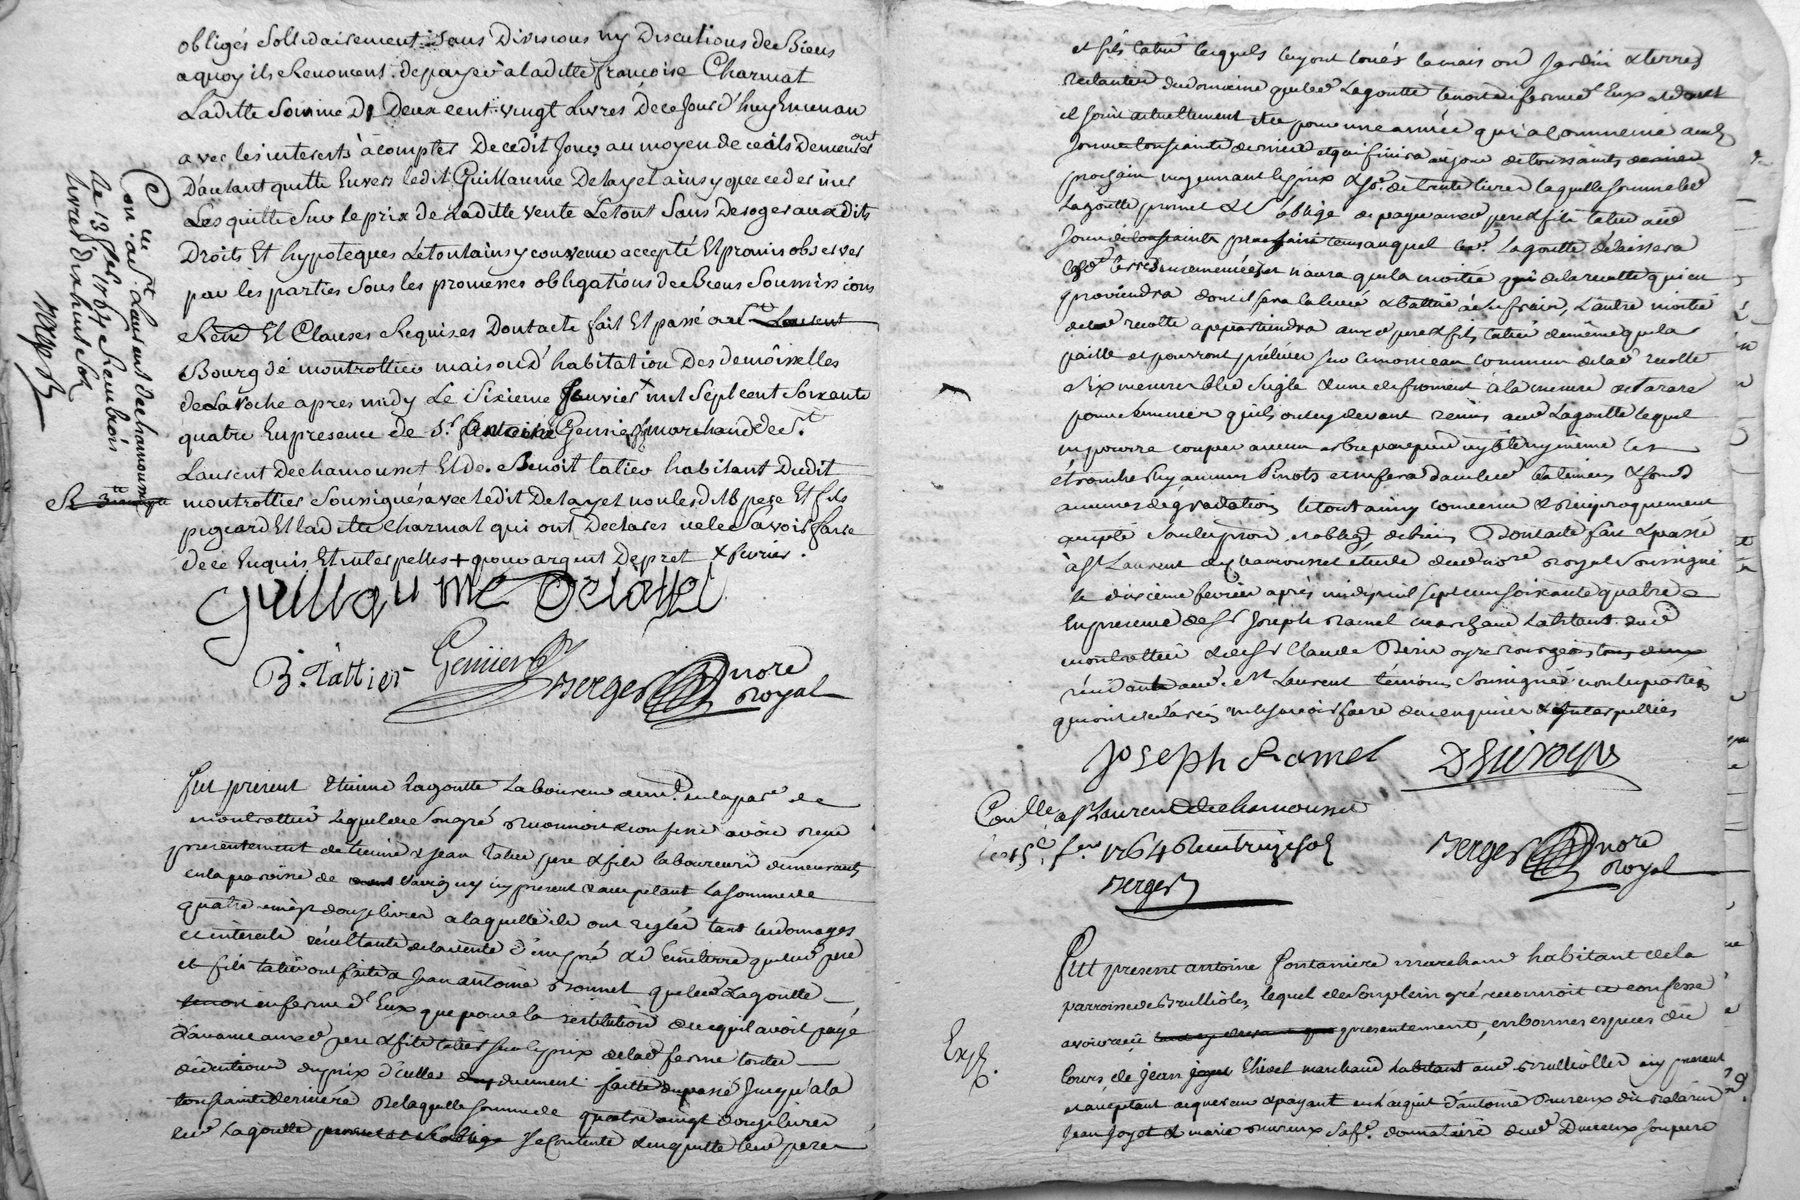 obligés Sollidairement Sans Divisions ny Discutions de Biens
a quoy ils Renoncent. de payer a laditte francoise Charmat
Laditte Somme De Deux cent vingt Livres de ce Jour d'huy En un an
avec les interests à compter De cedit Jour au moyen de ce ils Demeurent
D'autant quitte Envers ledit Guillaume Delayet ainsy que ce dernier
Les quitte Sur le prix de Laditte vente Le tout Sans Deroger auxdits
Droits Et hypoteques Le tout ainsy convenu accepté Et promis observer
par les parties Sous les promesses obligations de Biens Soumissions
Et Clauses Requises Dont acte fait Et passé au
Bourg de montrottier maison d'habitation Des demoiselles
de La Roche apres midy Le Sixieme Janvier mil Sept cent Soixante
quatre En presence de Sr. Antoine Genier marchand de St.
Laurent Dechamousset Et de Benoit tatier habitant Dudit
montrottier Soussignés avec ledit Delayet non lesdits pere Et fils
pigeard Et laditte Charmat qui ont Declarés ne le Savoir faire
de ce Enquis Et interpelles + pour argent De pret x fevrier.
Con. a St. Laurent dechamousset
le 13 1764
livres dix huit Sol
Berger
Guillaume Delayet
B. Tattier Genier Berger nore
Royal
Fut present Etienne Lagoutte Laboureur demt. en la par. de
montrottier Lequel de Son gré reconnoit & confesse avoir recu
presentement de tienne & Jean tatier pere & fils laboureurs demeurants
en la paroisse de Savigny icy present & acceptant La Somme de
quatre vingt douze livres a laquelle ils ont reglés tant les domages
et interests résultants de la vente d'un pré & d'une terre que lesd. pere
et fils tatier ont faite a Jean antoine Bonnet que led. Lagoutte
tenoit en ferme d'Eux que pour la restitution de ce qu'il avoit payé
d'avance auxd. pere & fils tatier sur le prix de lad. ferme toutes
déductions du prix d'icelle duement faitte du passé Jusqu'a la
toussainte derniere De laquelle Somme de quatre vingt douze livres
led. Lagoutte Se Contente & en quitte lesd. peres
et fils tatier lesquels luy ont loués la maison Jardin & terres
restantes du domaine que led. Lagoutte tenoit en ferme d'Eux
il Jouit actuellement et ce pour une année qui a commencé au
Jour de toussainte dernier et qui finira au jour de toussaints
prochain moyennant le prix & Se. de trente livres laquelle somme led.
Lagoutte promet & S'oblige de payer auxd. pere & fils tatier aud.
Jour de toussainte prochain tems auquel led. Lagoutte délaissera
lesd. terres ensemencées et n'aura que la moitié de la recolte qui en
proviendra dont il sera la levée & battue à Ses frais, L'autre moitié
de lad. recolte appartiendra auxd. pere & fils tatier de même que la
paille et pourront prélever sur le monceau commun de lad. recolte
Six mesures bled Seigle & une de froment à la mesure de tarare
pour semence qu'ils ont cy devant remis aud. Lagoutte lequel
ne pourra couper aucun arbre par pied ny même les
étrancher ny aucuns Pinots et ne fera dans led. batiments & fonds
aucunes dégradations le tout ainsy convenu & reciproquement
accepté Sous les prom. & oblig. de biens Dont acte fait & passé
à St. Laurent de chamousset étude dud. nore. royal Soussigné
le dixieme fevrier après midy mil sept cent soixante quatre
En presence de Sr. Joseph Ramel marchand habitant dud.
montrottier & de Sr. Claude bourgeois
résidant aud. St. Laurent témoins Soussignés non les parties
qui ont declarés ne le scavoir faire de ce enquises & interpellées
Joseph Ramel
Con. lle a St. Laurent de chamousset
le 15e. fev. 1764 Reçu treize sols
Berger
Berger nore
Royal
Exp.
Fut present antoine fontaniere marchand habitant de la
parroisse de Brullioles, lequel de son plein gré reconnoit & confesse
avoir recu presentement, en bonnes especes du
Cours de Jean thevel marchand habitant aud. Brulliolles icy present
et acceptant acquereur & payant en l'acquit d'antoine Dureux dit
Jean Joyet & marie Dureux Sa fe. donnataire dud. Dureux son pere